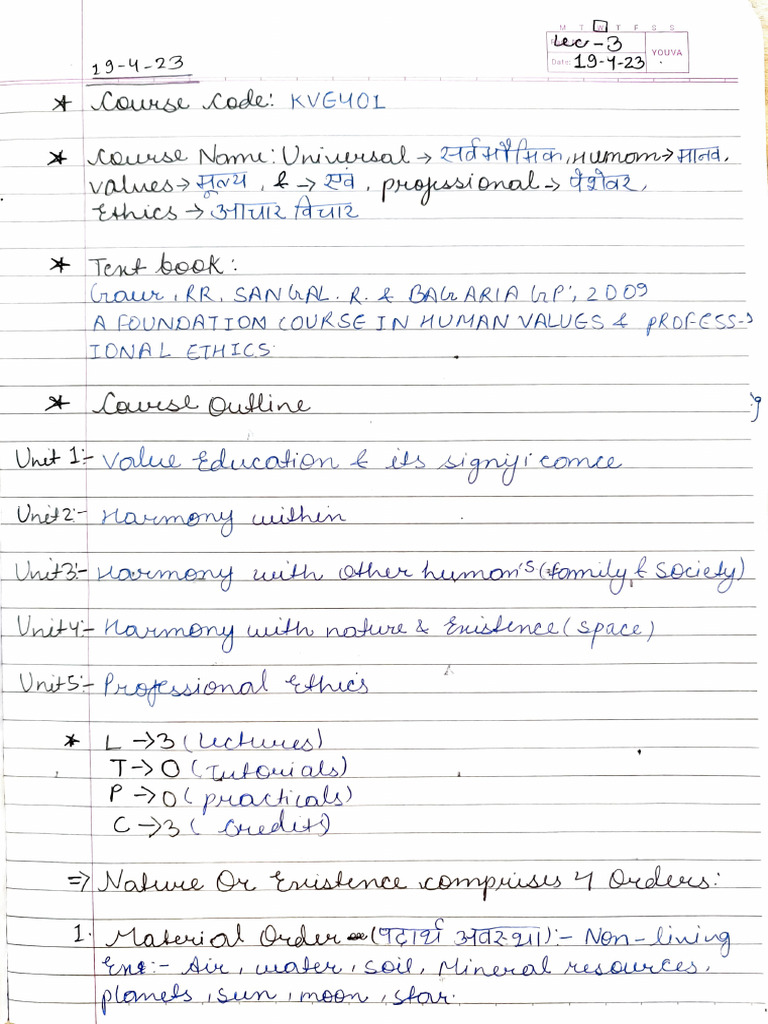 M T W T F S S
Lec-3
YOUVA
Date: 19-4-23
19-4-23
* Course Code: KVE401
* Course Name: Universal → सर्वभौमिक, Human → मानव,
values → मूल्य, & → एवं, professional → पेशेवर,
Ethics → आचार विचार
* Text book:
Gaur, RR, SANGAL. R. & BAGARIA GP, 2009
A FOUNDATION COURSE IN HUMAN VALUES & PROFESS-
IONAL ETHICS.
* Course Outline
Unit 1:- Value Education & its significance
Unit 2:- Harmony within
Unit 3:- Harmony with other human's (family & society)
Unit 4:- Harmony with nature & Existence (space)
Unit 5:- Professional Ethics
* L → 3 (Lectures)
T → 0 (Tutorials)
P → 0 (practicals)
C → 3 (Credits)
⇒ Nature Or Existence comprises 4 Orders:
1. Material Order (पदार्थ अवस्था):- Non-living
Ex:- Air, water, soil, Mineral resources,
planets, sun, moon, star.